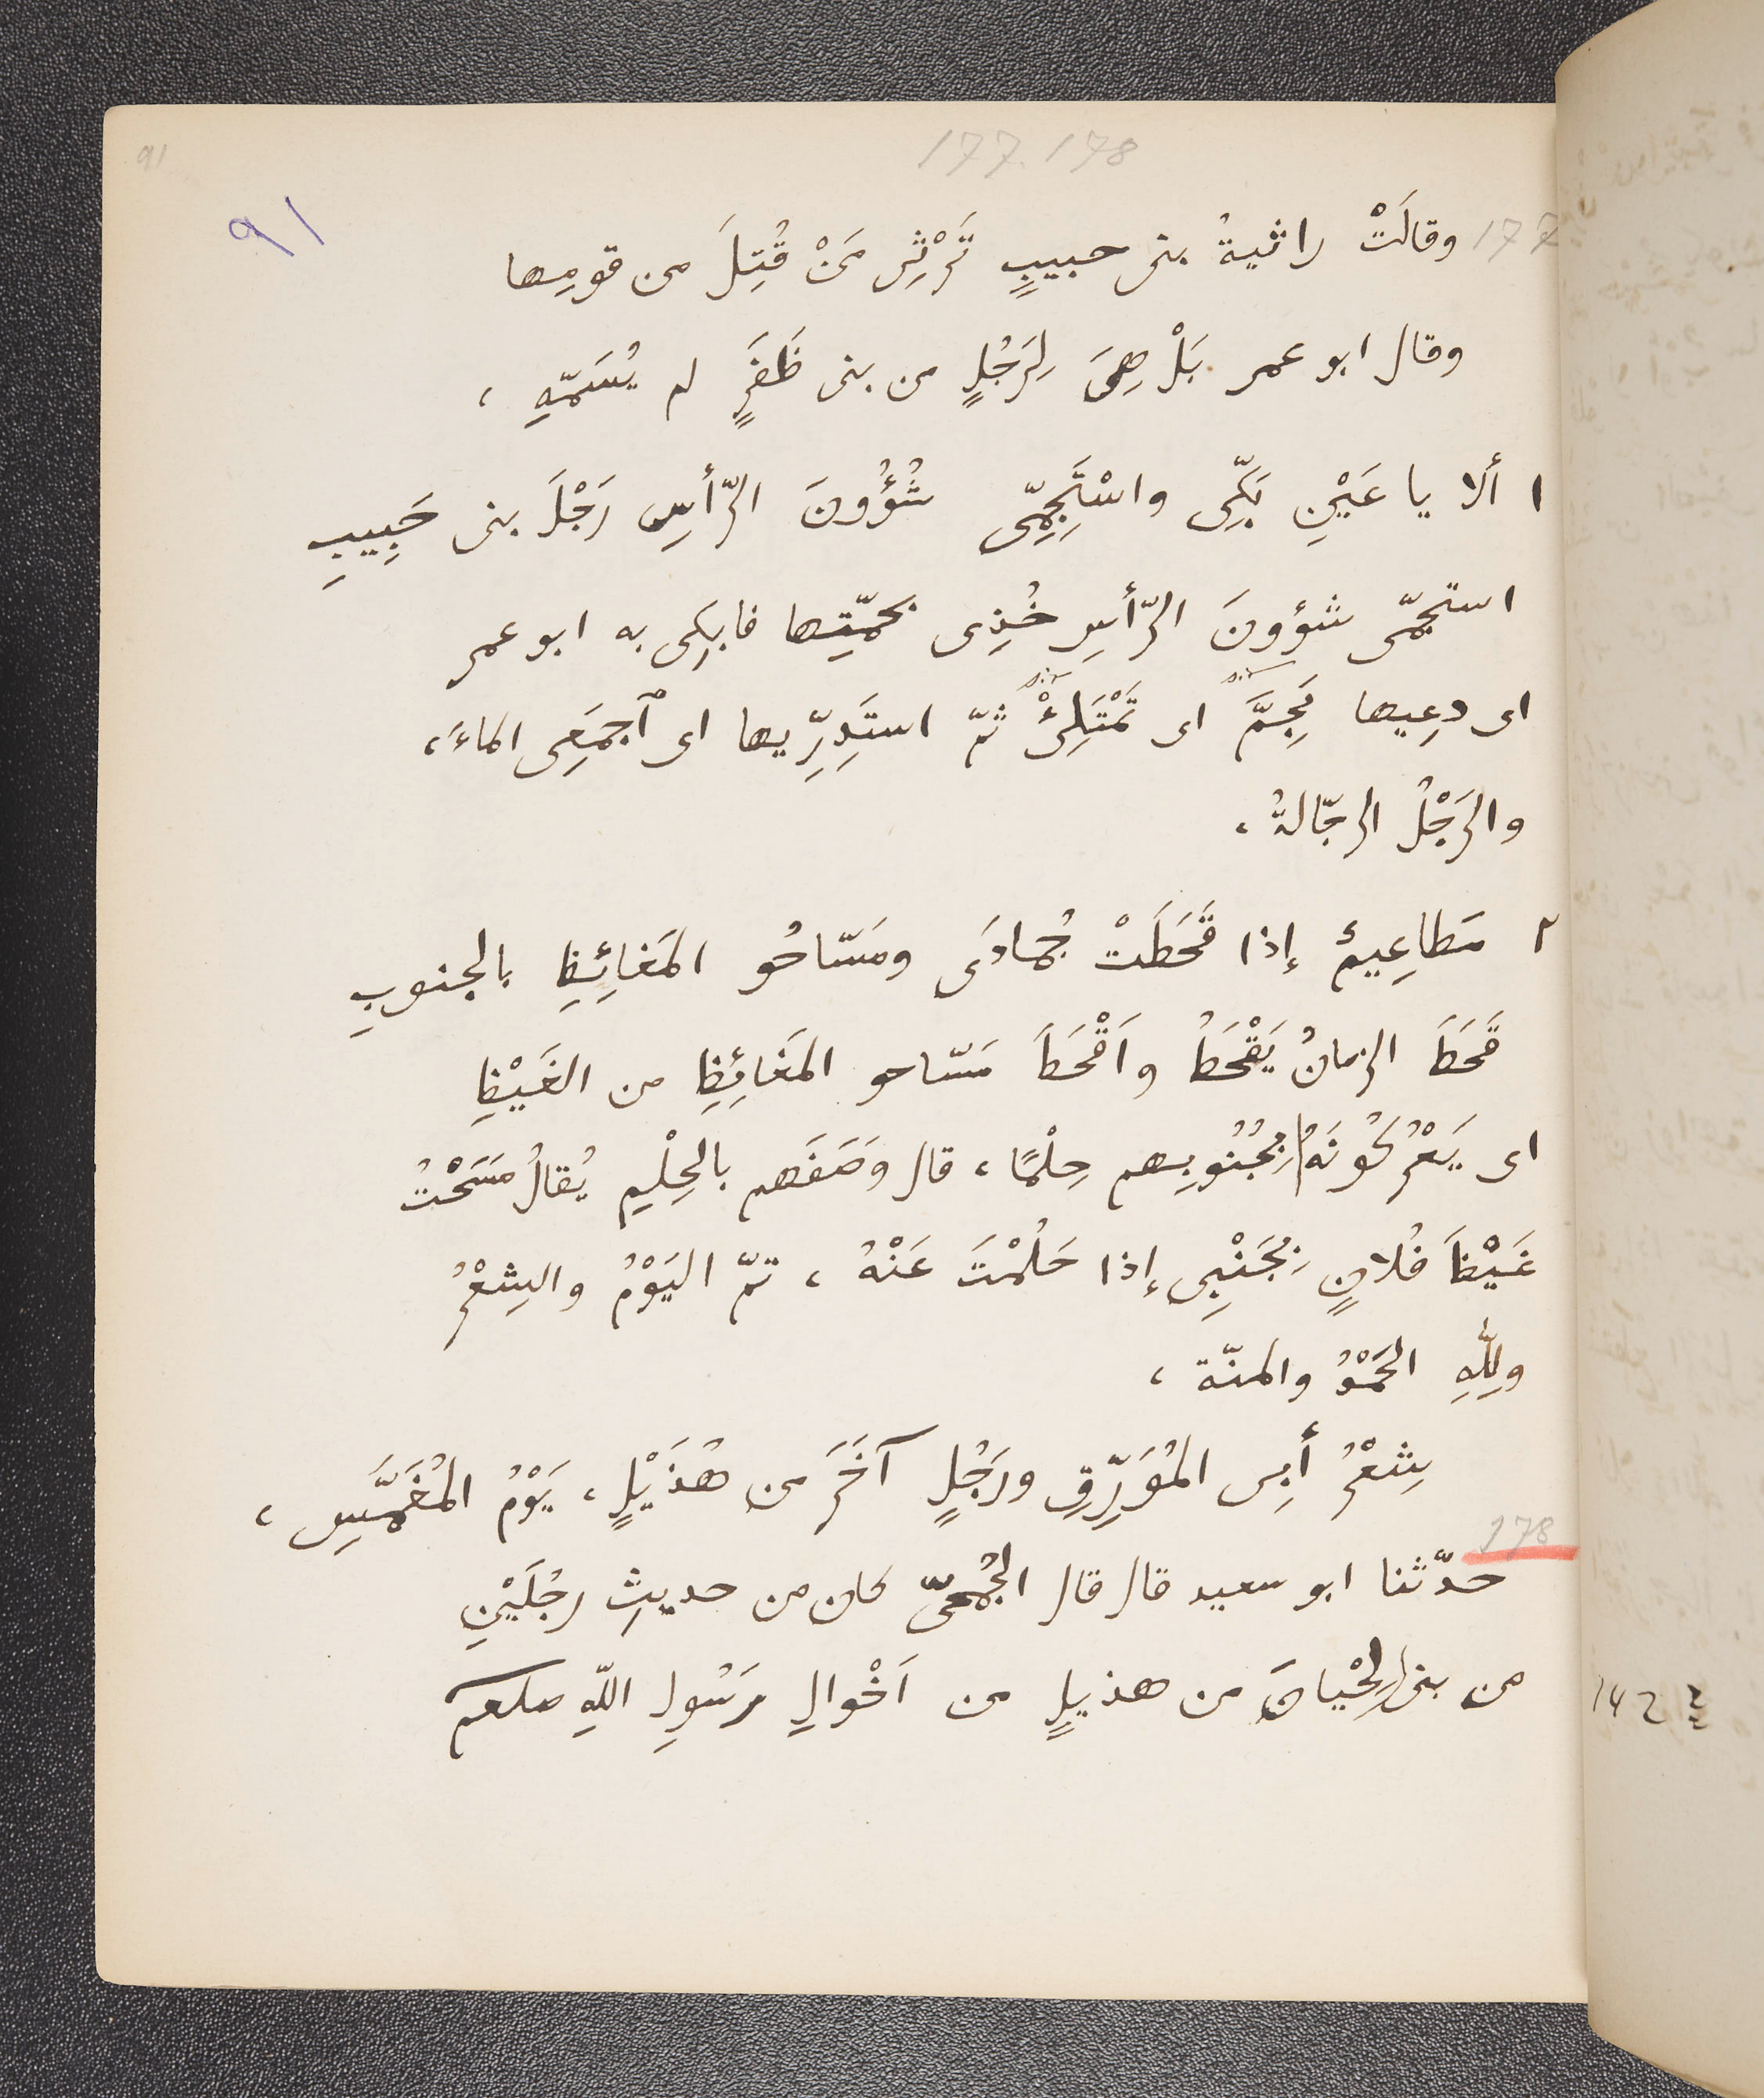 91
177. 178
91
177 وقالَتْ راثيةُ بنى حبيبٍ تَرْثِى مَنْ قُتِلَ من قومِها
وقال ابو عمر بَلْ هِىَ لِرَجُلٍ من بنى ظَفَرٍ لم يُسَمِّهِ ،
١ ألا يا عَيْنِ بَكِّى واسْتَجِمِّى شُؤُونَ الرّأسِ رَجْلَ بنى حَبِيبِ
استجمّى شؤونَ الرّأسِ خُذِى بحمّتِها فابكِى به ابو عمر
اى دعِيها تَجِمَّ اى تَمْتَلِئْ ثمّ استَدِرِّيها اى ٱجمَعِى الماءَ ،
والرَجْلُ الرجّالةُ ،
٢ مَطاعِيمُ إذا قَحَطَتْ جُمادَى ومَسّاحُو المَغائِظِ بالجنوبِ
قَحَطَ الزمانُ يَقْحَطُ واَقْحَطَ مَسّاحو المَغائِظِ من الغَيْظِ
اى يَعْرُكُونَهُ بِجُنُوبِهم حِلْمًا ، قال وَصَفَهم بالحِلْمِ يُقالُ مَسَحْتُ
غَيْظَ فُلانٍ بِجَنْبِى إذا حَلُمْتَ عَنْهُ ، تمّ اليَوْمُ والشِعْرُ
ولِلّٰهِ الحَمْدُ والمنّة ،
شِعْرُ أَبِى المُوَرِّقِ ورَجُلٍ آخَرَ من هُذَيْلٍ ، يَوْمُ المُغَمَّسِ ،
178
حدّثنا ابو سعيد قال قال الجُمَحِىّ كان من حديثِ رجُلَيْنِ
من بنى لِحْيانَ من هذيلٍ من اَخْوالِ رَسُولِ اللّهِ صلعم
142